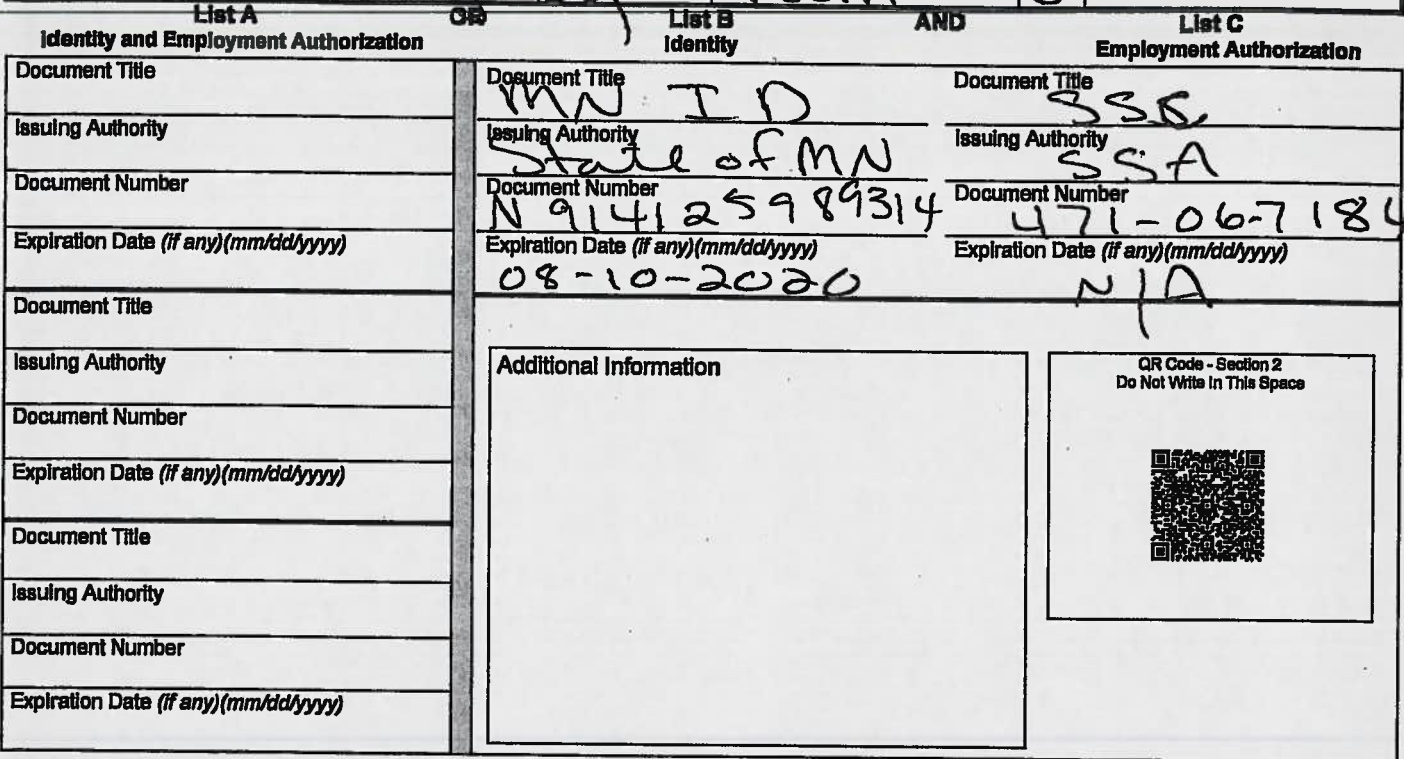 List A
Identity and Employment Authorization
OR
List B
Identity
AND
List C
Employment Authorization
Document Title
Issuing Authority
Document Number
Expiration Date (if any)(mm/dd/yyyy)
Document Title
Issuing Authority
Document Number
Expiration Date (if any)(mm/dd/yyyy)
Document Title
Issuing Authority
Document Number
Expiration Date (if any)(mm/dd/yyyy)
Document Title
MN ID
Issuing Authority
State of MN
Document Number
N914125989314
Expiration Date (if any)(mm/dd/yyyy)
08-10-2020
Document Title
Issuing Authority
SSA
Document Number
471-06-7184
Expiration Date (if any)(mm/dd/yyyy)
N/A
Additional Information
QR Code - Section 2
Do Not Write In This Space